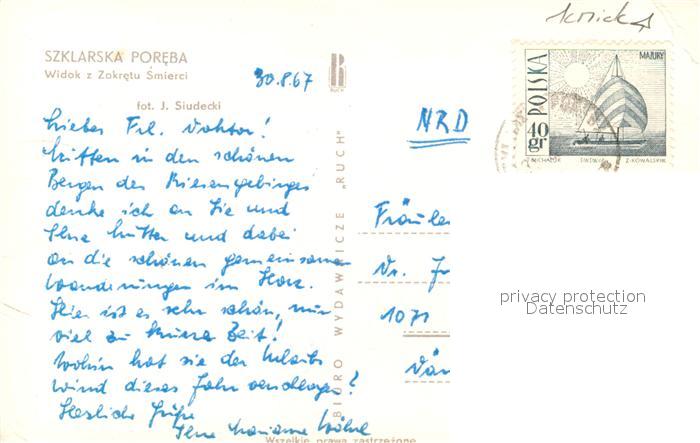 SZKLARSKA PORĘBA
Widok z Zokrętu Śmierci
fot. J. Siudecki
30.8.67
RUCH
Liebes Frl. Doktor!
Mitten in den schönen
Bergen des Riesengebirges
denke ich an Sie und
Ihre Mutter und dabei
an die schönen gemeinsamen
Wanderungen im Harz.
Hier ist es sehr schön, nur
viel zu kurze Zeit!
Wohin hat sie der Urlaubs
wind dieses Jahr verschlagen?
Herzliche Grüße
Ihre Marianne
BIURO WYDAWNICZE „RUCH"
Wszelkie prawa zastrzeżone
NRD
POLSKA
40 gr
MAZURY
Z. KOWALSKI
Fräule
Dr.
1071
privacy protection
Datenschutz